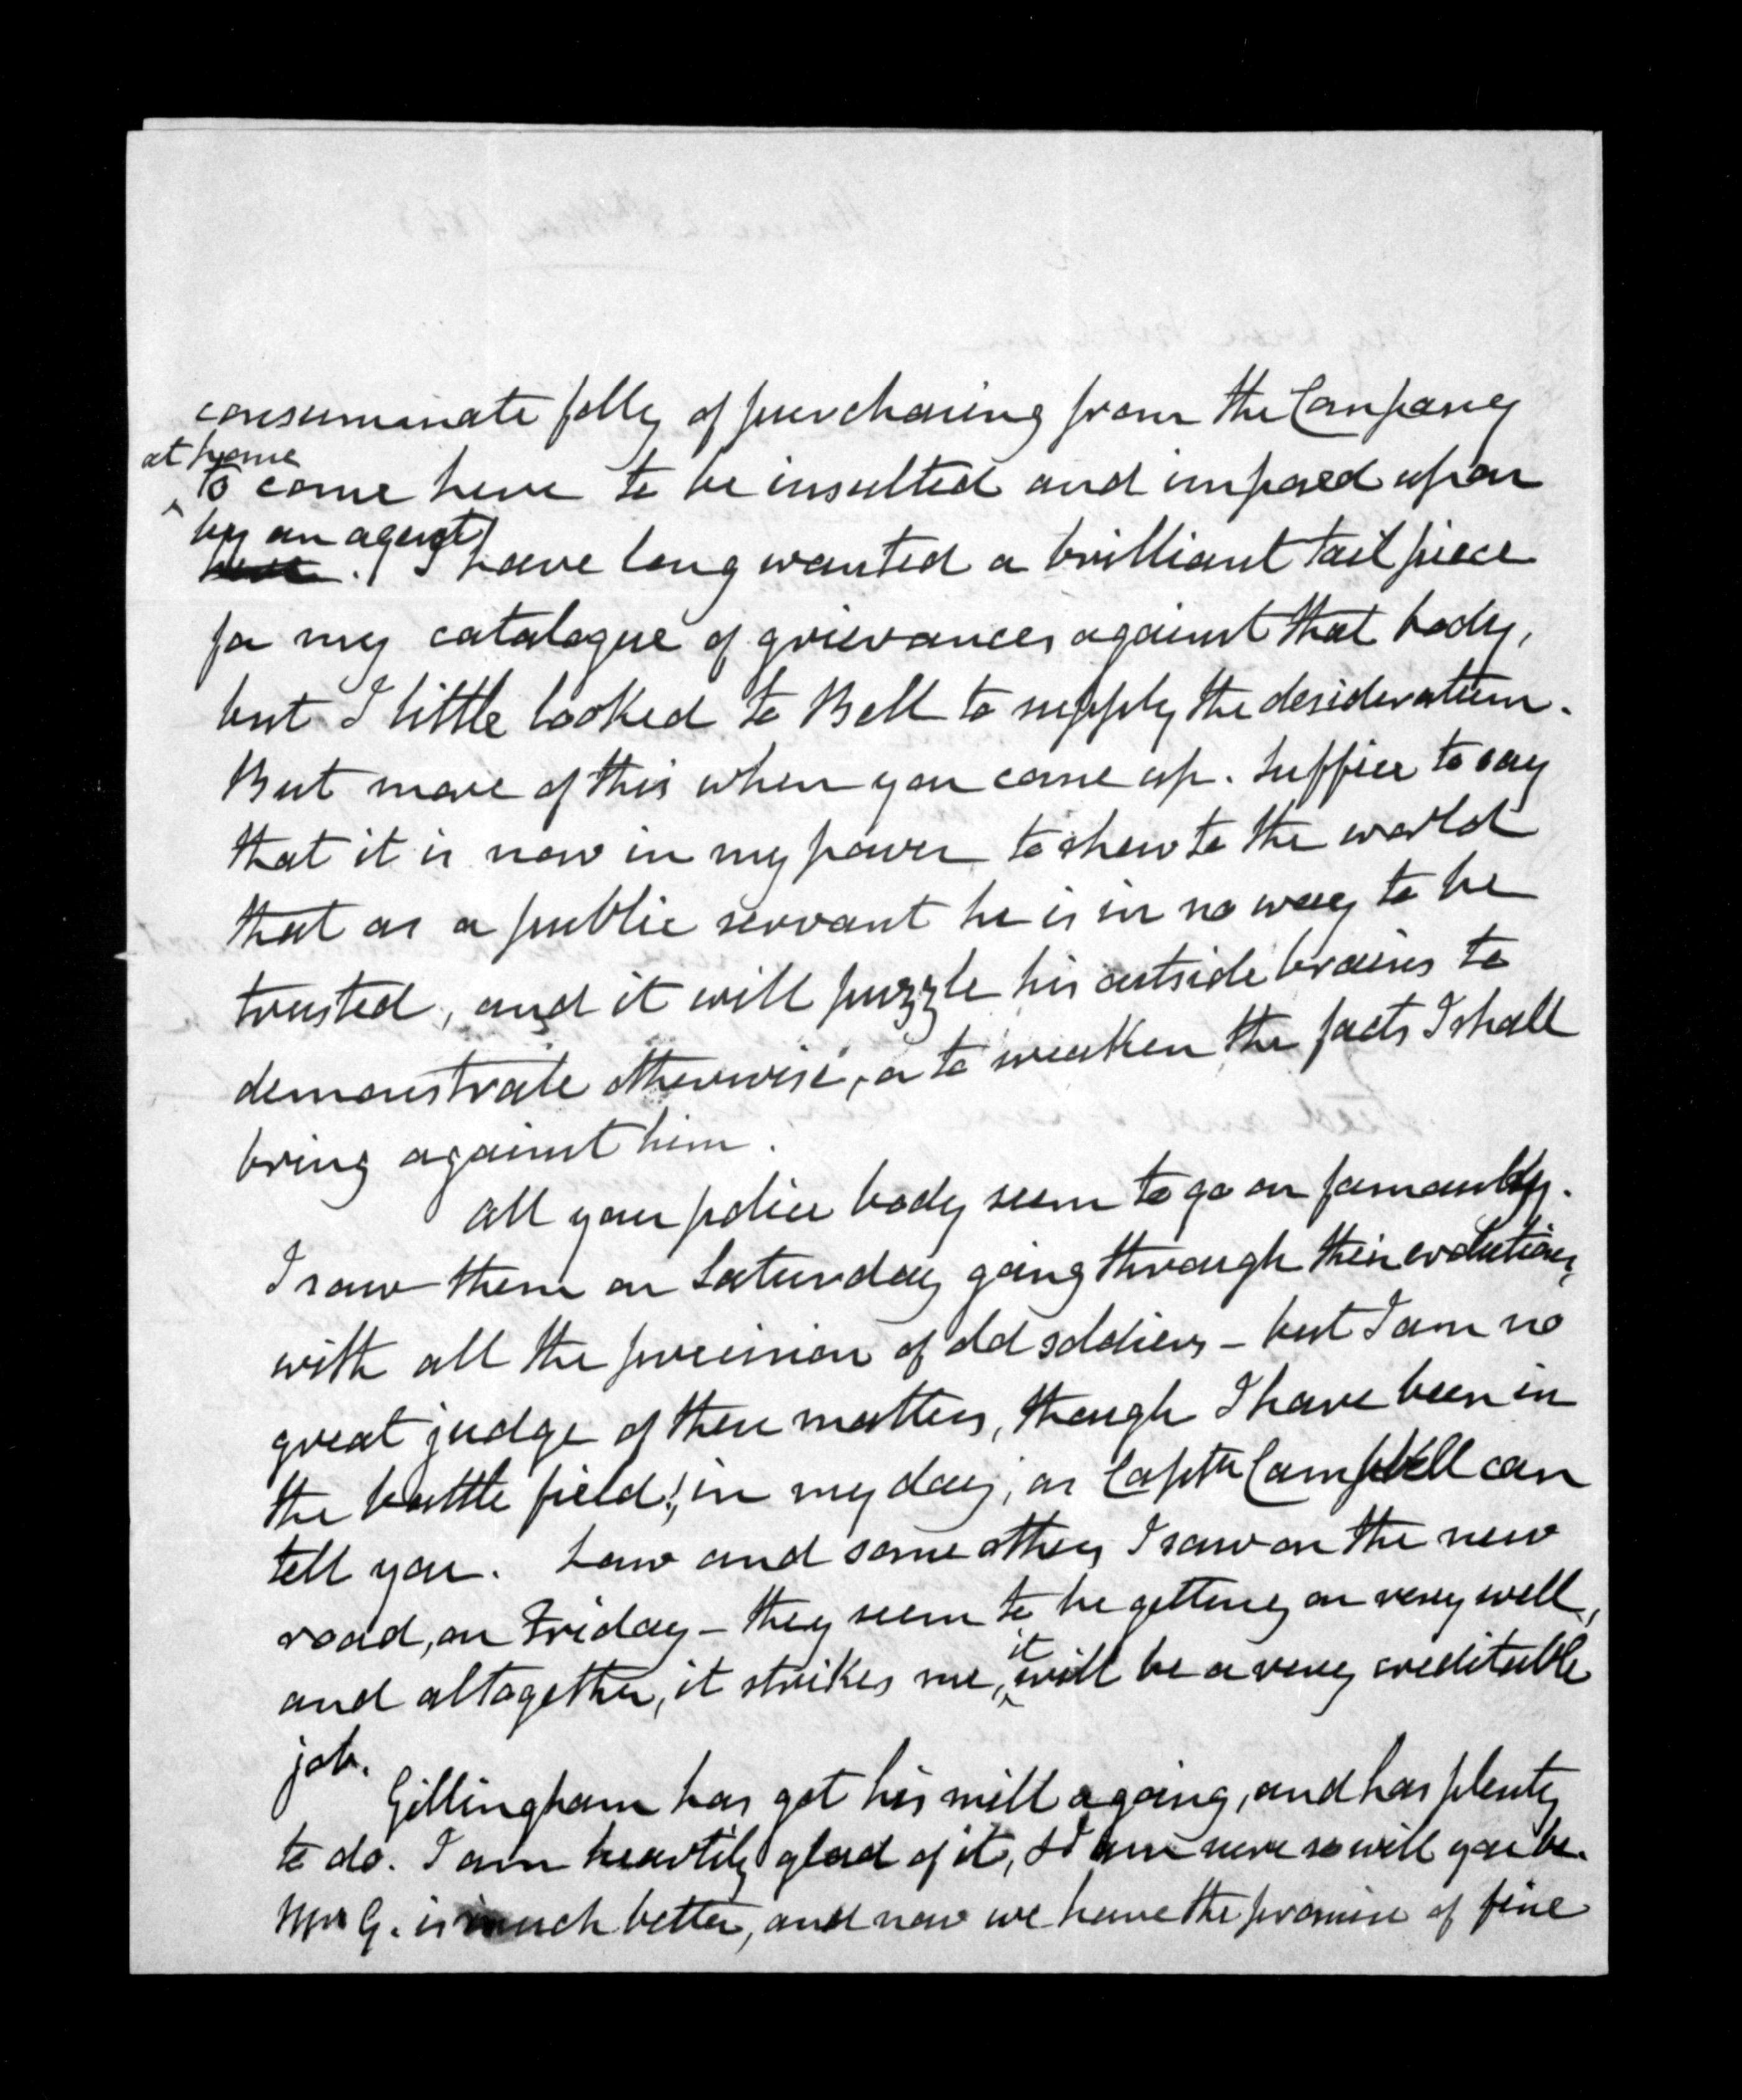 consummate folly of purchasing from the Company
at home
to come here to be insulted and imposed upon
by an agent
here. I have long wanted a brilliant tail piece
for my catalogue of grievances against that body,
but I little looked to Bell to supply the desideratum.
But more of this when you come up. Suffice to say
that it is now in my power to shew to the world
that as a public servant he is in no way to be
trusted, and it will puzzle his outside brains to
demonstrate otherwise, or to weaken the facts I shall
bring against him.
All your police body seem to go on famously.
I saw them on Saturday going through their evolutions,
with all the precision of old soldiers - but I am no
great judge of these matters, though I have been in
the battle field! in my day, as Captn Campbell can
tell you. Law and some others I saw on the new
road, on Friday - they seem to be getting on very well,
and altogether, it strikes me, it will be a very creditable
job.
Gillingham has got his mill agoing, and has plenty
to do. I am heartily glad of it, & I am sure so will you be.
Mrs G. is much better, and now we have the promise of fine